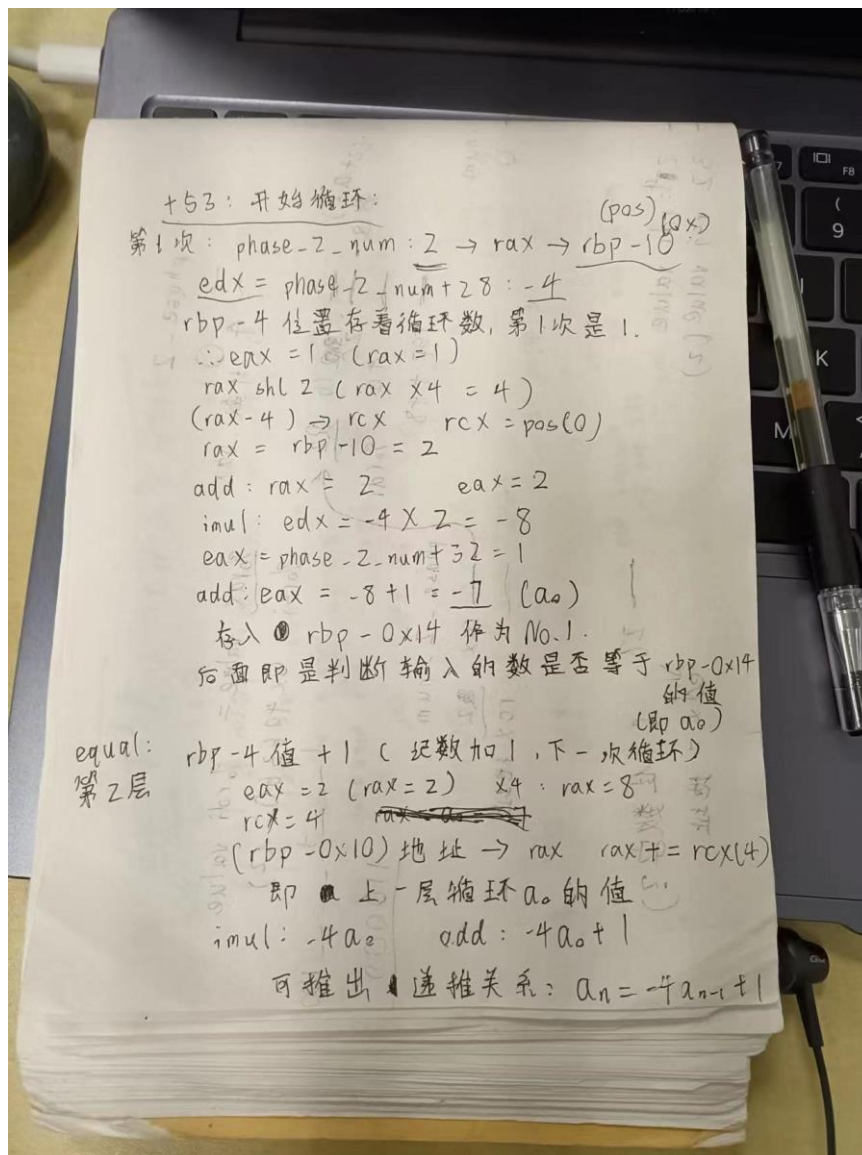 +53: 开始循环:
(pos)
第1次: phase_2_num: 2 → rax → rbp-10 (0x)
edx = phase_2_num+28: -4
rbp-4 位置存着循环数, 第1次是1.
∴eax = 1 (rax=1)
rax shl 2 (rax ×4 = 4)
(rax-4) → rcx rcx = pos(0)
rax = rbp-10 = 2
add: rax = 2 eax = 2
imul: edx = -4 × 2 = -8
eax = phase_2_num+32 = 1
add: eax = -8+1 = -7 (a₀)
存入 rbp-0x14 作为 No.1.
后面即是判断输入的数是否等于 rbp-0x14
的值
(即 a₀)
equal: rbp-4值+1 (记数加1, 下一次循环)
第2层 eax=2 (rax=2) ×4: rax=8
rcx=4
(rbp-0x10) 地址 → rax rax += rcx(4)
即 上一层循环 a₀ 的值
imul: -4a₀ add: -4a₀+1
可推出 递推关系: aₙ = -4aₙ₋₁+1
F8
9
K
M